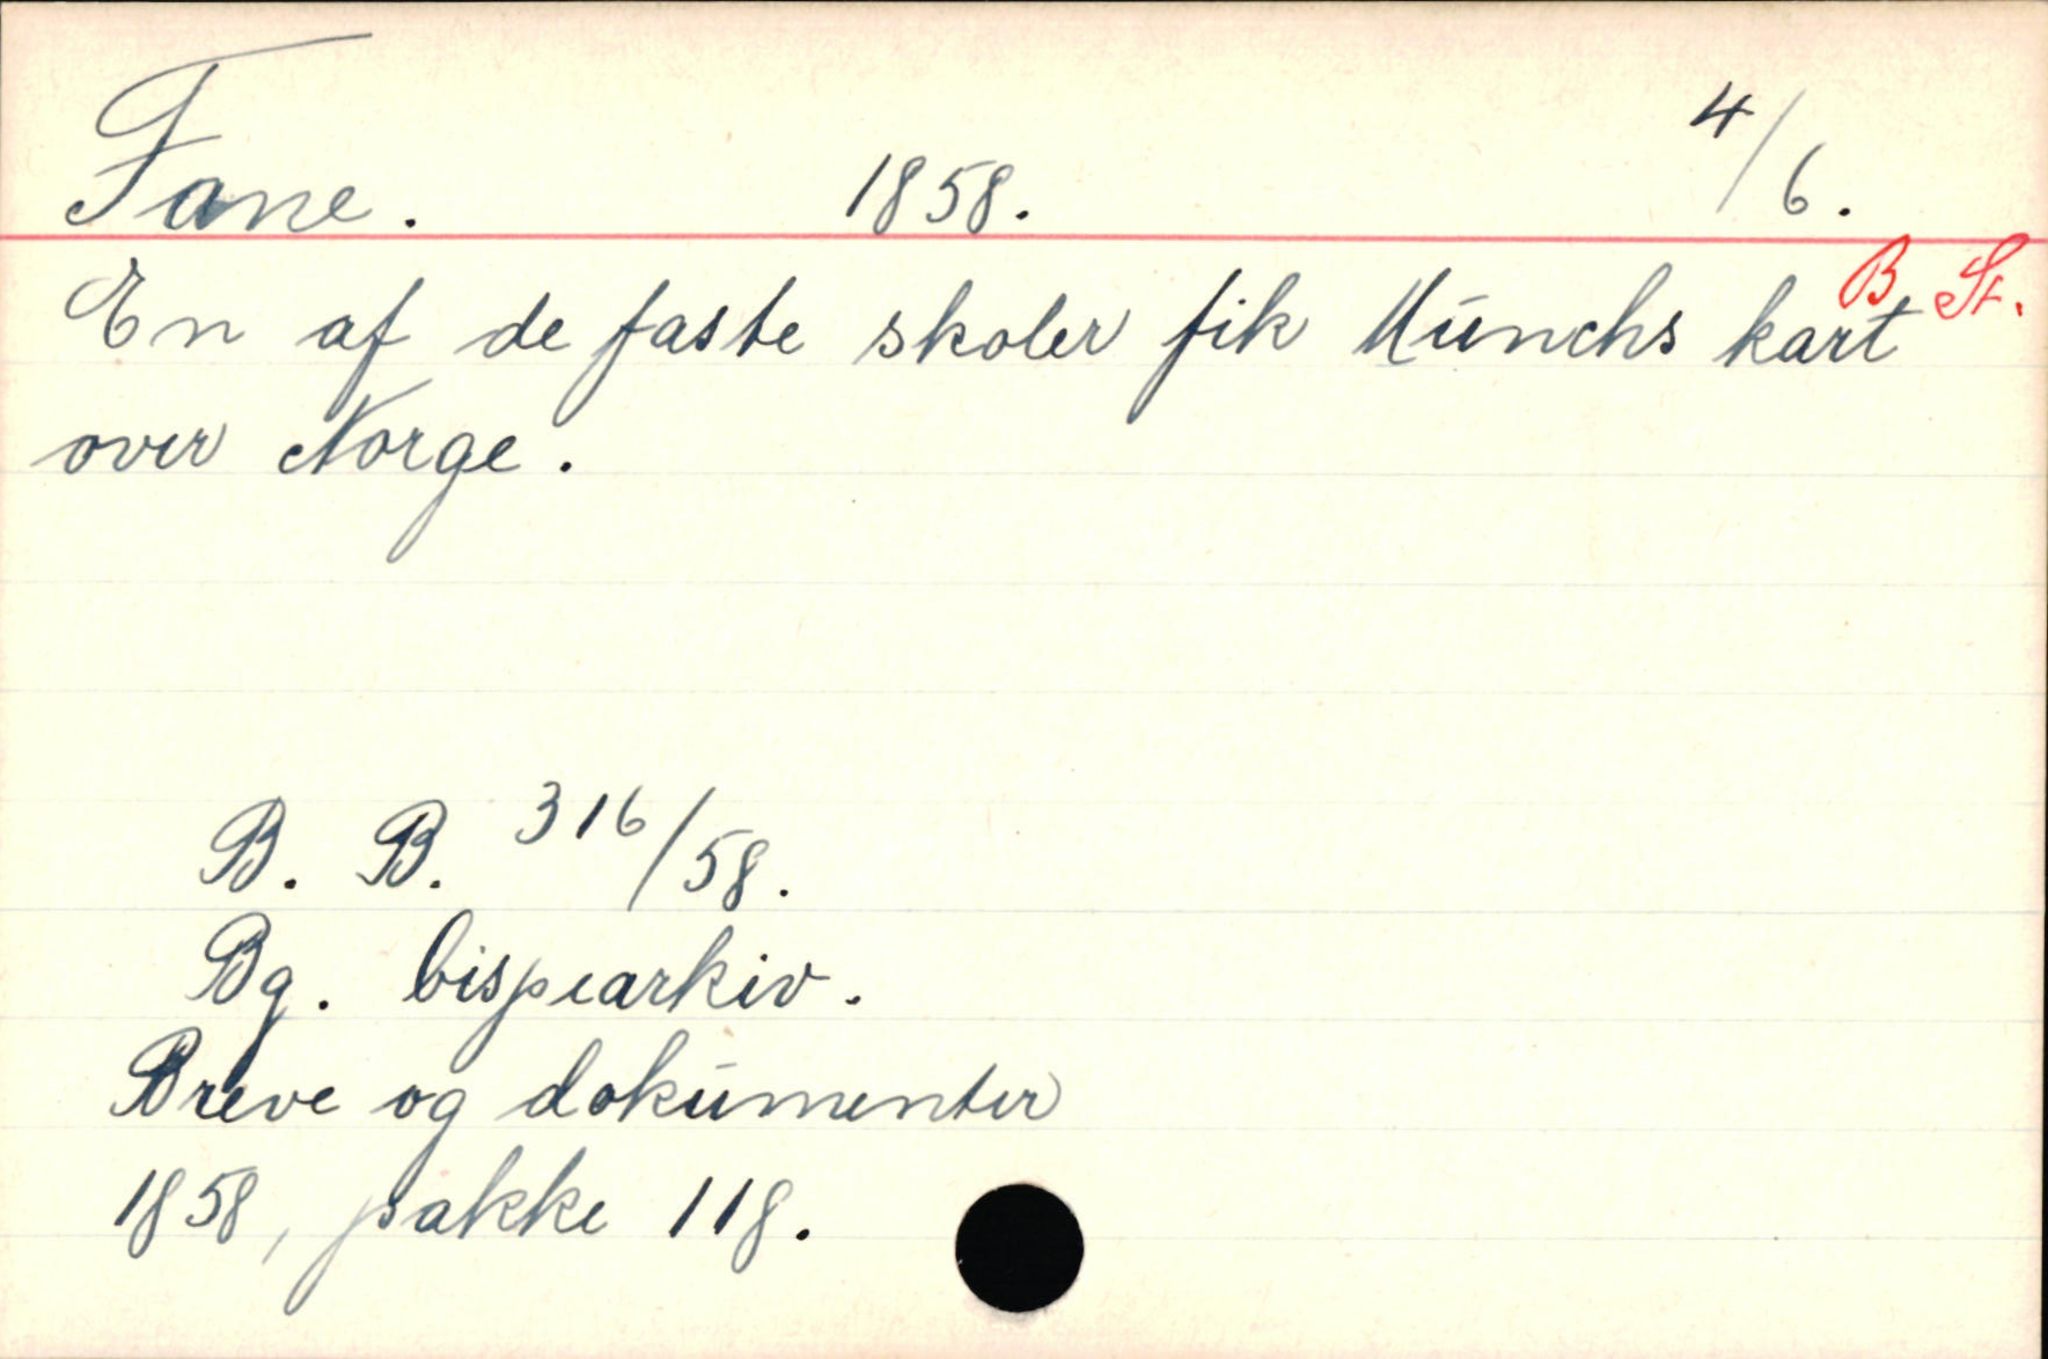 Fane. 1858. 4/6.
B St.
En af de faste skoler fik Munchs kart
over Norge.
B. B. 316/58.
Bg. bispearkiv.
Breve og dokumenter
1858, pakke 118.